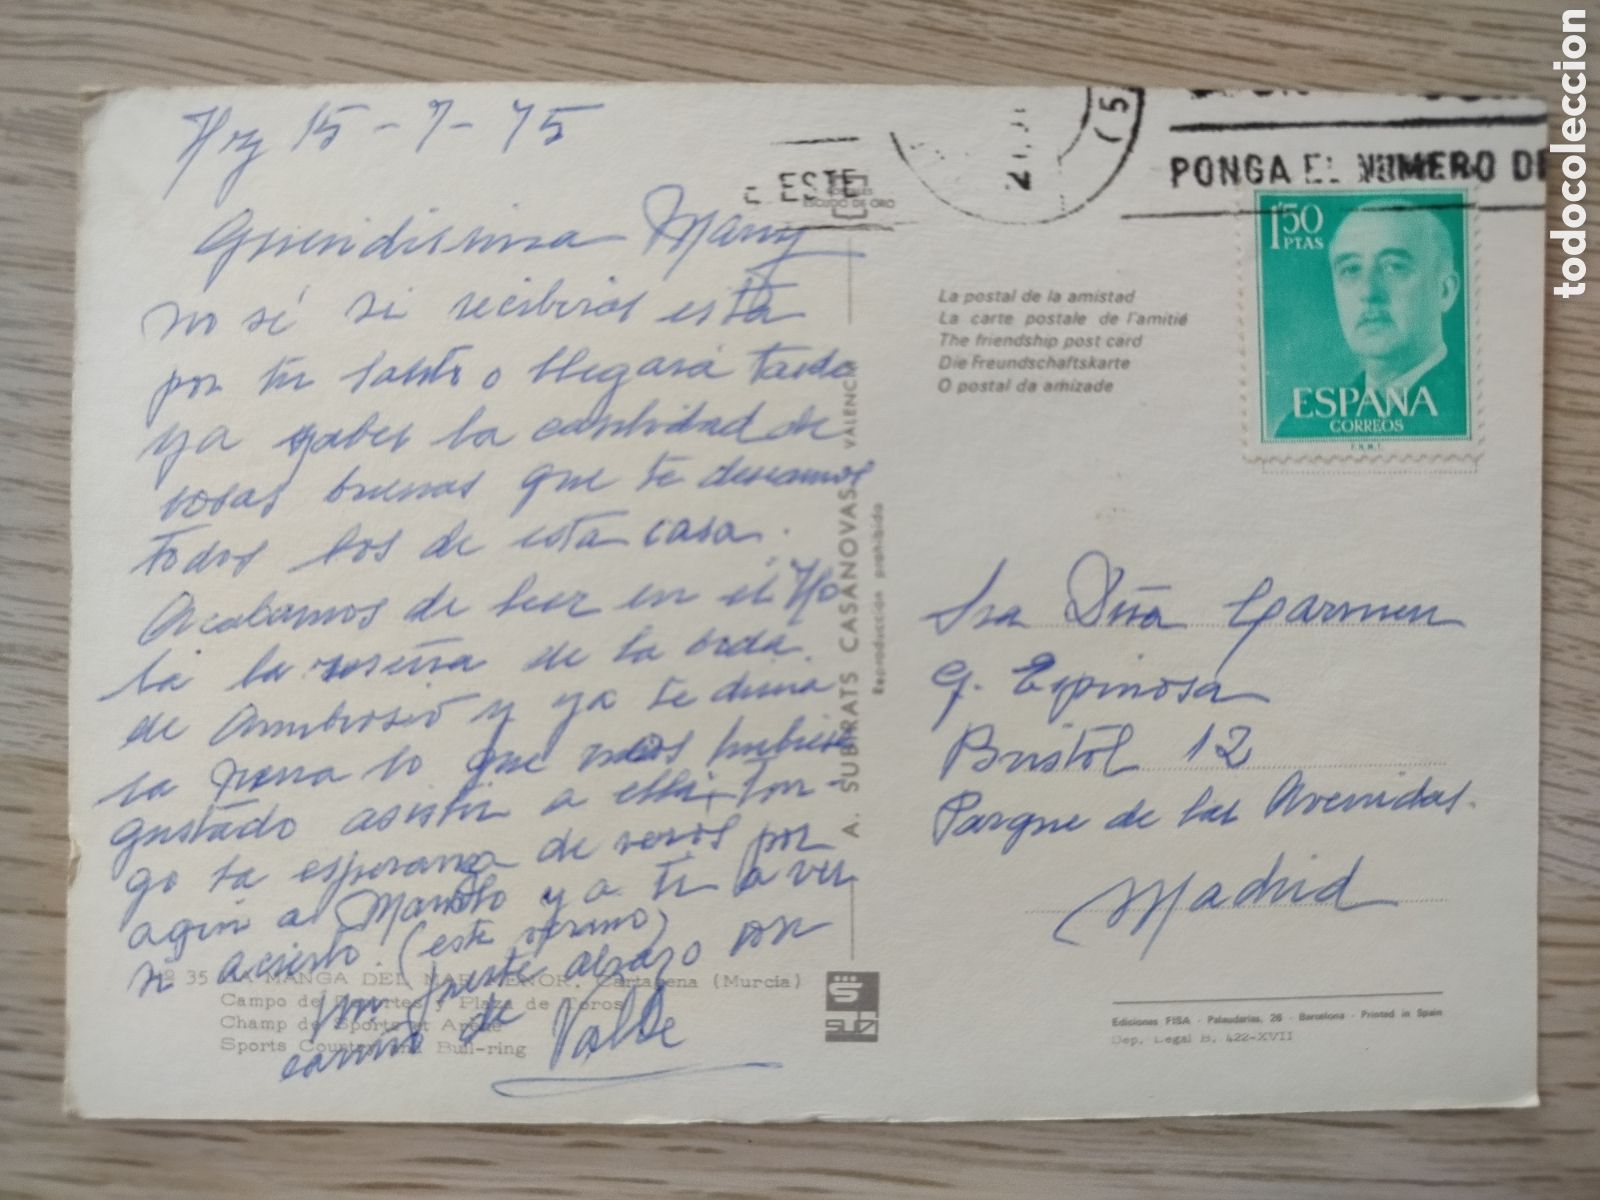 Hoy 15-7-75
Queridisima Mamy
no sé si recibiras esta
por tu santo o llegará tarde
ya sabes la cantidad de
cosas buenas que te deseamos
todos los de esta casa.
Acabamos de leer en el Ho
la la reseña de la boda
de Ambrosio y ya te diria
la nena lo que nos hubiese
gustado asistir a ella, ten-
go la esperanza de veros por
aqui a Manolo y a ti a ver
si acierto. (este verano)
un fuerte abrazo con
cariño de
Valle
Nº 35 LA MANGA DEL MAR MENOR. Cartagena (Murcia)
Campo de Deportes y Plaza de Toros
Champ de Sports et Arène
Sports Country and Bull-ring
A. SUBIRATS CASANOVAS VALENCIA
Reproducción prohibida
ESCUDO DE ORO
ESTE
PONGA EL NUMERO DE
1'50
PTAS
ESPAÑA
CORREOS
F.N.M.T.
La postal de la amistad
La carte postale de l'amitié
The friendship post card
Die Freundschaftskarte
O postal da amizade
Sra Dña Carmen
G. Espinosa
Bristol 12
Parque de las Avenidas.
Madrid
Ediciones FISA - Palaudarias, 26 - Barcelona - Printed in Spain
Dep. Legal B. 422-XVII
todocoleccion